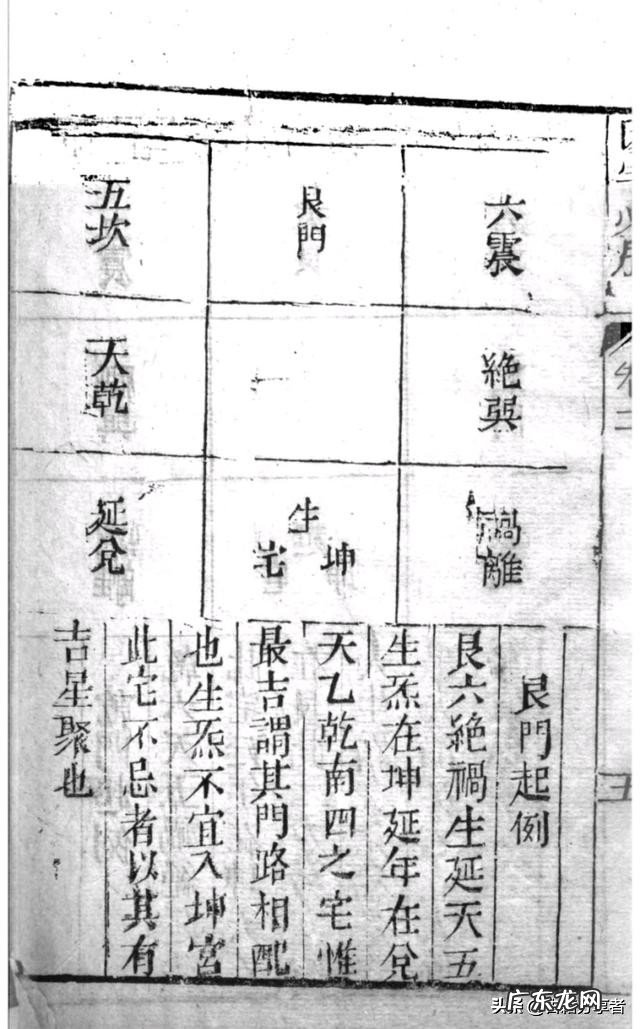 六震
艮門
五坎
絕巽
天乾
禍離
生
坤
宅
延兌
艮門起例
艮六絕禍生延天五
生炁在坤延年在兌
天乙乾南四之宅惟
最吉謂其門路相配
也生炁不宜入坤宮
此宅不忌者以其有
吉星聚也
广东龙网